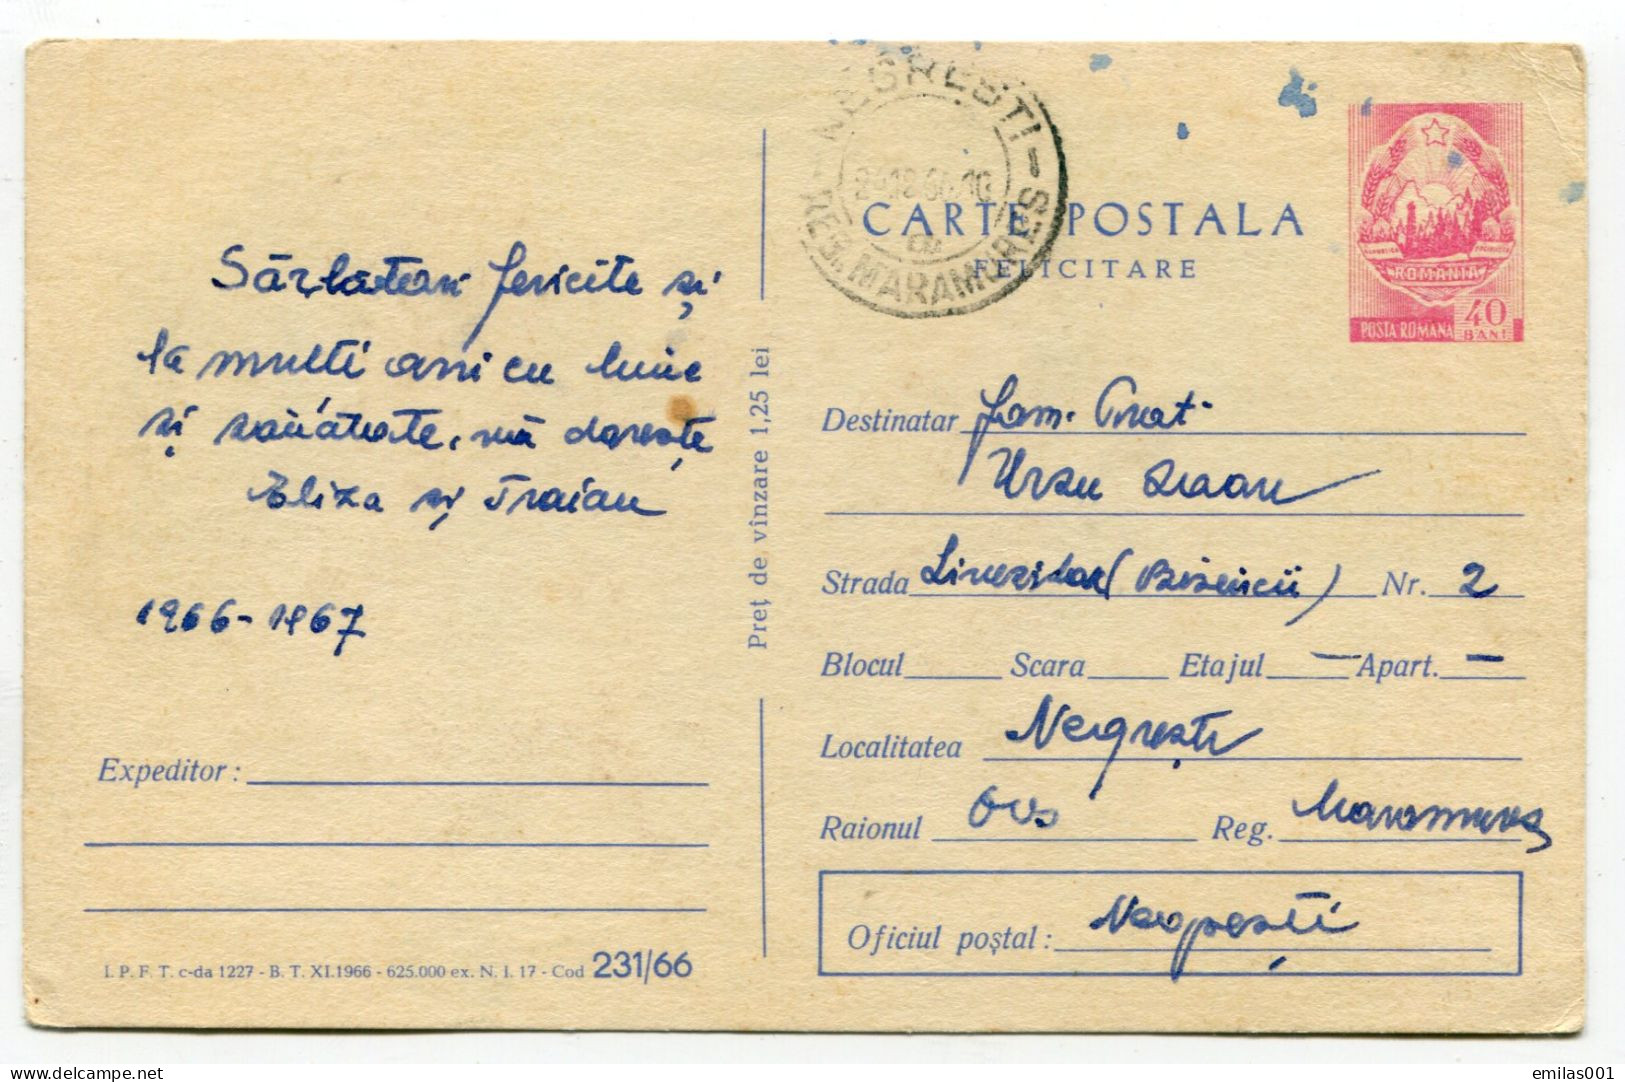 NEGREȘTI
REG. MARAMUREȘ
CARTE POSTALA
FELICITARE
ROMANIA
POSTA ROMANA 40 BANI
Sărbători fericite și
la multi ani cu bine
și sănătate, vă dorește
Eliza și Traian
1966-1967
Expeditor:
I. P. F. T. c-da 1227 - B. T. XI.1966 - 625.000 ex. N. I. 17 - Cod 231/66
Preț de vînzare 1,25 lei
Destinatar Fam.
Ursu
Strada (Bisericii) Nr. 2
Blocul Scara Etajul — Apart. —
Localitatea Negrești
Raionul Oaș Reg. Maramureș
Oficiul poștal: Negrești
HipPostcard.com
emilas001